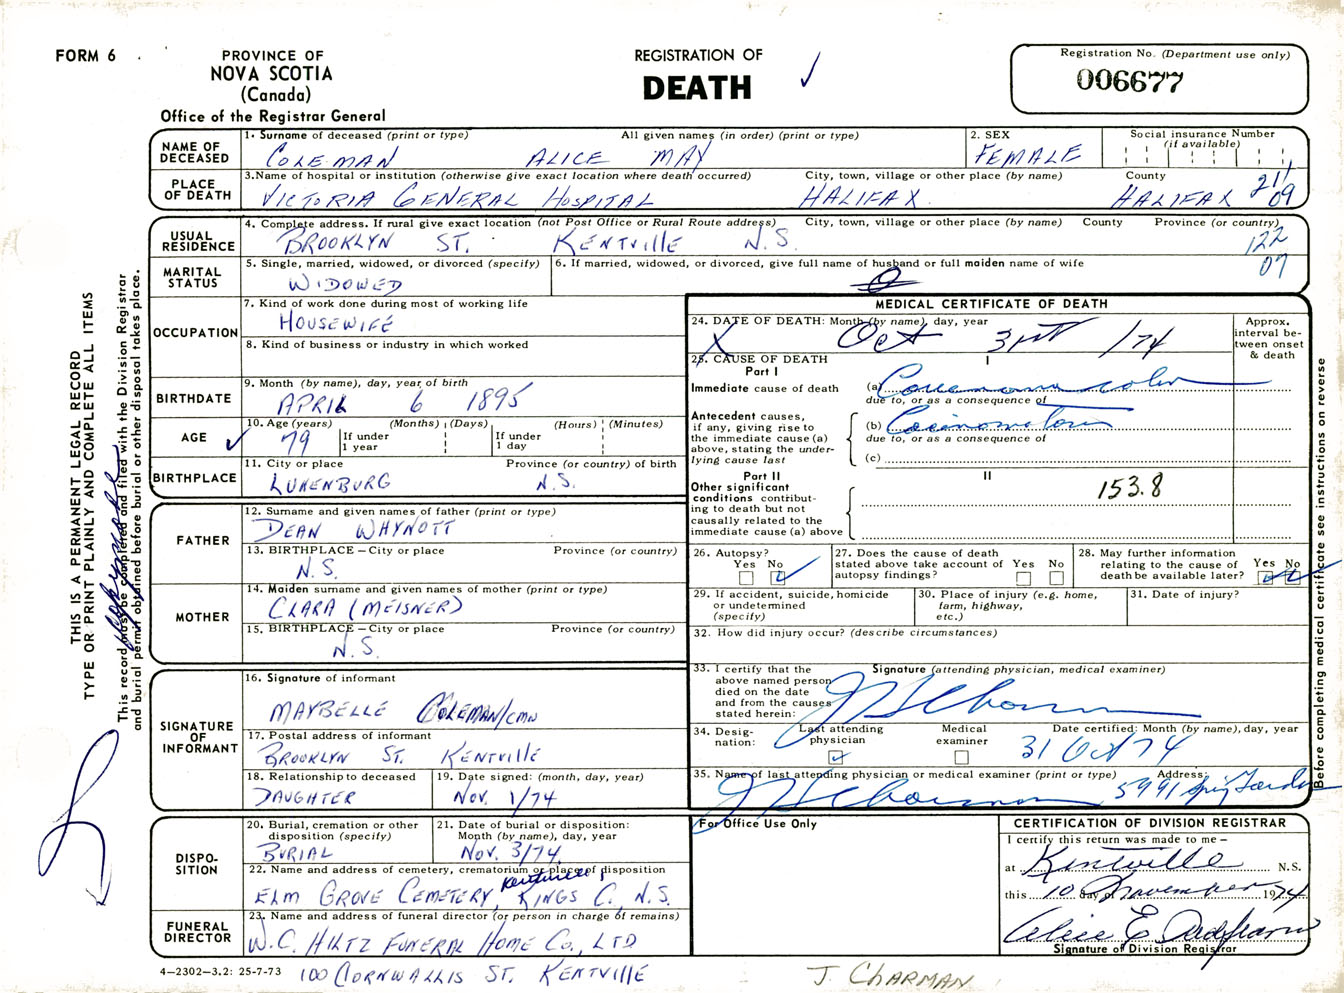 FORM 6
PROVINCE OF
NOVA SCOTIA
(Canada)
Office of the Registrar General
REGISTRATION OF
DEATH
Registration No. (Department use only)
006677
NAME OF DECEASED
1. Surname of deceased (print or type) All given names (in order) (print or type)
COLEMAN ALICE MAY
2. SEX
FEMALE
Social insurance Number
(if available)
PLACE OF DEATH
3. Name of hospital or institution (otherwise give exact location where death occurred) City, town, village or other place (by name) County
VICTORIA GENERAL HOSPITAL HALIFAX HALIFAX
211
09
USUAL RESIDENCE
4. Complete address. If rural give exact location (not Post Office or Rural Route address) City, town, village or other place (by name) County Province (or country)
BROOKLYN ST. KENTVILLE N.S.
122
07
MARITAL STATUS
5. Single, married, widowed, or divorced (specify)
WIDOWED
6. If married, widowed, or divorced, give full name of husband or full maiden name of wife
OCCUPATION
7. Kind of work done during most of working life
HOUSEWIFE
8. Kind of business or industry in which worked
BIRTHDATE
9. Month (by name), day, year of birth
APRIL 6 1895
AGE
10. Age (years) (Months) (Days) (Hours) (Minutes)
79 If under 1 year If under 1 day
BIRTHPLACE
11. City or place Province (or country) of birth
LUNENBURG N.S.
FATHER
12. Surname and given names of father (print or type)
DEAN WHYNOTT
13. BIRTHPLACE – City or place Province (or country)
N.S.
MOTHER
14. Maiden surname and given names of mother (print or type)
CLARA (MEISNER)
15. BIRTHPLACE – City or place Province (or country)
N.S.
SIGNATURE OF INFORMANT
16. Signature of informant
MAYBELLE COLEMAN/cmw
17. Postal address of informant
BROOKLYN ST. KENTVILLE
18. Relationship to deceased
DAUGHTER
19. Date signed: (month, day, year)
NOV. 1/74
DISPOSITION
20. Burial, cremation or other disposition (specify)
BURIAL
21. Date of burial or disposition: Month (by name), day, year
NOV. 3/74
22. Name and address of cemetery, crematorium or place of disposition
Kentville
ELM GROVE CEMETERY, KINGS C. N.S.
FUNERAL DIRECTOR
23. Name and address of funeral director (or person in charge of remains)
W.C. HILTZ FUNERAL HOME CO., LTD
100 CORNWALLIS ST. KENTVILLE
4–2302–3.2: 25-7-73
MEDICAL CERTIFICATE OF DEATH
24. DATE OF DEATH: Month (by name), day, year
Oct 31st /74
Approx. interval between onset & death
25. CAUSE OF DEATH
Part I
I
Immediate cause of death
(a) colon
due to, or as a consequence of
Antecedent causes, if any, giving rise to the immediate cause (a) above, stating the underlying cause last
(b)
due to, or as a consequence of
(c)
Part II
II
Other significant conditions contributing to death but not causally related to the immediate cause (a) above
153.8
26. Autopsy?
Yes No
27. Does the cause of death stated above take account of autopsy findings?
Yes No
28. May further information relating to the cause of death be available later?
Yes No
29. If accident, suicide, homicide or undetermined (specify)
30. Place of injury (e.g. home, farm, highway, etc.)
31. Date of injury?
32. How did injury occur? (describe circumstances)
33. I certify that the above named person died on the date and from the causes stated herein:
Signature (attending physician, medical examiner)
34. Designation:
Last attending physician
Medical examiner
Date certified: Month (by name), day, year
31 Oct 74
35. Name of last attending physician or medical examiner (print or type) Address:
5991 Spring Garden
For Office Use Only
CERTIFICATION OF DIVISION REGISTRAR
I certify this return was made to me –
at Kentville N.S.
this 10 day of November 1974
Alice E.
Signature of Division Registrar
J. CHARMAN
THIS IS A PERMANENT LEGAL RECORD
TYPE OR PRINT PLAINLY AND COMPLETE ALL ITEMS
This record must be completed and filed with the Division Registrar
and burial permit obtained before burial or other disposal takes place.
Before completing medical certificate see instructions on reverse